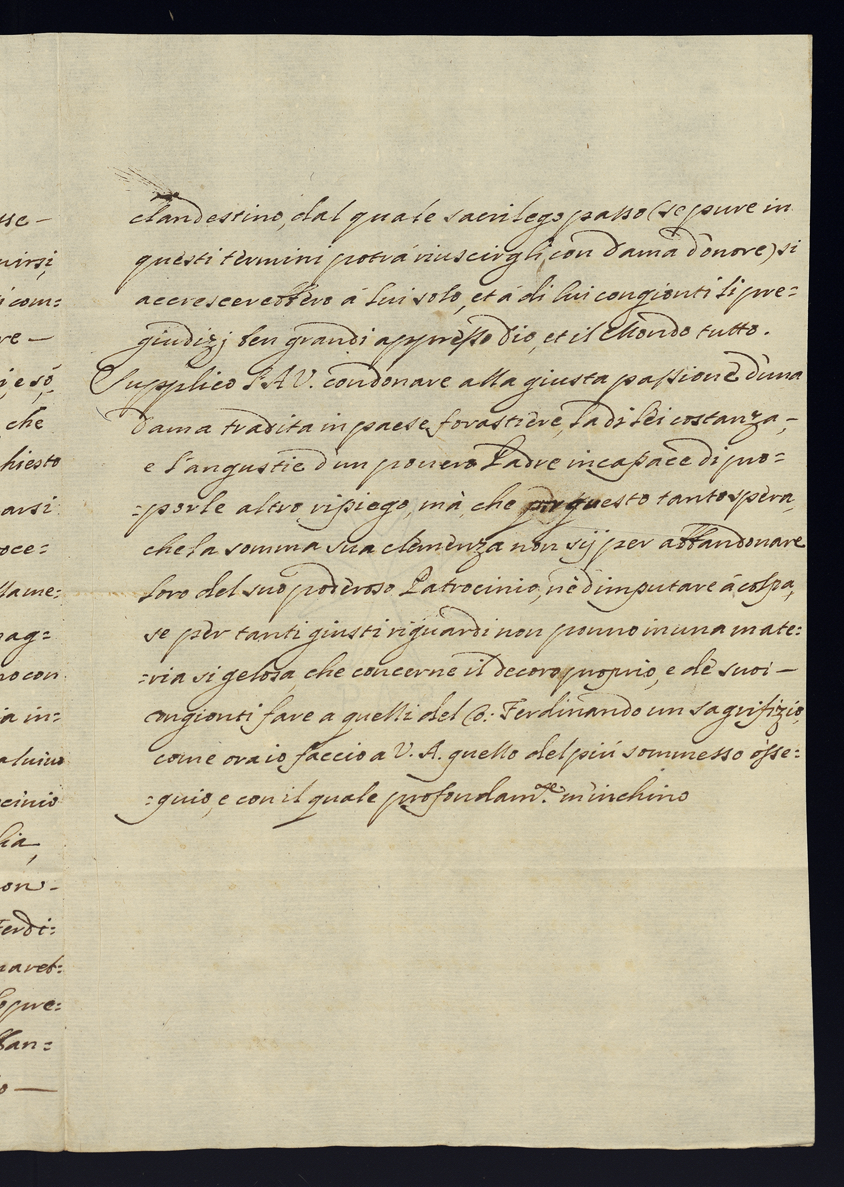 sse-
nirsi,
i com:
re-
i, e só,
che
hiesto
arsi
oce=
llame:
pag=
no con
ia in=
cinio
lia,
on-
Ferdi:
naret:
pre=
an=
o —
clandestino, dal quale sacrilego passo (se pure in
questi termini potrá riuscirgli con Dama d'onore) si
accrescerebbero á lui solo, et á di lui congionti li pre=
giudizj ben grandi appresso Dio, et il Mondo tutto.
Supplico l'A V. condonare alla giusta passione d'una
Dama tradita in paese forastiere, la di lei costanza,-
e l'angustie d'un povero Padre incapace di pro=
=porle altro ripiego, mà, che per questo tanto spera,
che la somma sua clemenza non sij per abbandonare
loro del suo poderoso Patrocinio, nè d'imputare á colpa,
se per tanti giusti riguardi non ponno in una mate:
=ria si gelosa, che concerne il decoro proprio, e de suoi-
congionti fare a quelli del B: Ferdinando un sagrifizio,
come ora io faccio a V. A. quello del piú sommesso osse:
=quio, e con il quale profondam.te m'inchino